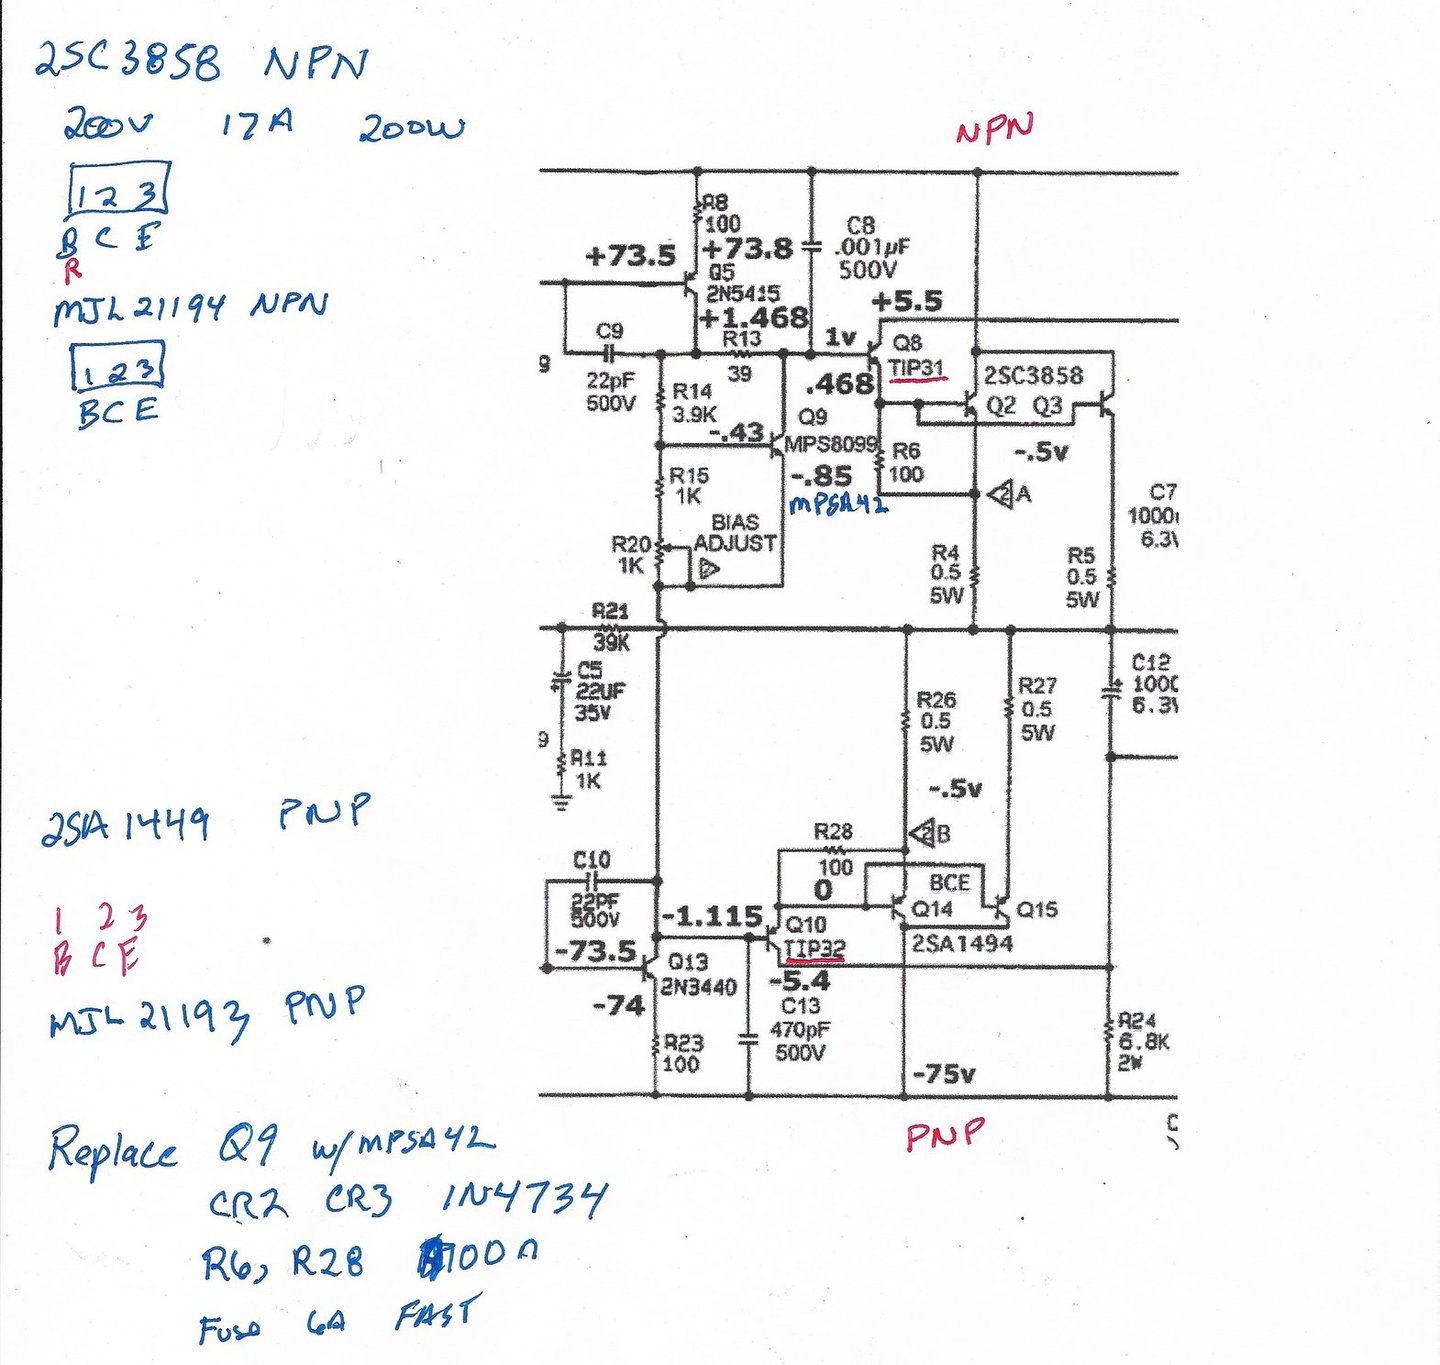 2SC3858 NPN
200V 17A 200W
1 2 3
B C E
R
MJL21194 NPN
1 2 3
B C E
2SA1449 PNP
1 2 3
B C E
MJL21193 PNP
Replace Q9 w/MPSA42
CR2 CR3 1N4734
R6, R28 100Ω
Fuse 6A FAST
NPN
R8
100
+73.5
+73.8
Q5
2N5415
+1.468
C8
.001µF
500V
+5.5
C9
22pF
500V
9
R13
39
1v
Q8
TIP31
.468
2SC3858
Q2 Q3
R14
3.9K
-.43
Q9
MPS8099
-.85
MPSA42
R6
100
-.5v
2 A
R15
1K
BIAS
ADJUST
R20
1K
R4
0.5
5W
R5
0.5
5W
C7
1000
6.3
R21
39K
C5
22UF
35V
9
R11
1K
R26
0.5
5W
R27
0.5
5W
C12
+
6.3
-.5v
2 B
R28
100
0
BCE
Q14
Q15
2SA1494
C10
22PF
500V
-1.115
Q10
TIP32
-73.5
Q13
2N3440
-74
-5.4
C13
470pF
500V
R23
100
R24
6.8K
2W
-75v
PNP